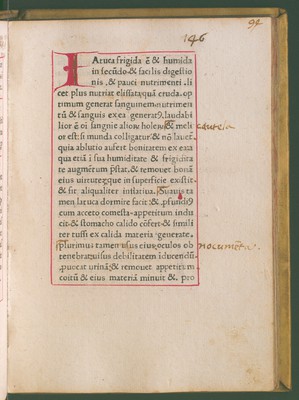 94
146
LAtuca frigida ē & humida
in secūdo & facilis digestio
nis, & pauci nutrimenti . li
cet plus nutriat elissata quā cruda. op
timum generat sanguinem nutrimen
tū & sanguis ex ea generat9. laudabi
lior ē oi sanguie alioꝝ holeꝝ & meli
or est: si munda colligatur & nō lauet̄
quia ablutio aufert bonitatem ex ea
qua etiā i sua humiditate & frigidita
te augmētum pstat, & remouet bonā
eius virtutē que in superficie existit
& fit aliqualiter inflatiua. Suauis ta
men latuca dormire facit & pfūdi9
cum aceto comesta appetitum indu
cit & stomacho calido cōfert & simili
ter tussi ex calida materia generate.
plurimus tamen usus eius oculos ob
tenebrat uisus debilitatem iducendū
purgat urinā: & remouet appetitum
coitū & eius materiā minuit &. pro
nocumēta